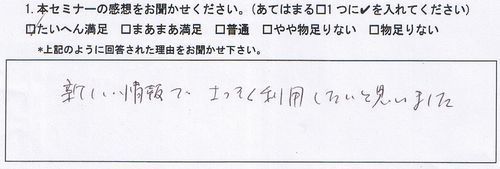 1. 本セミナーの感想をお聞かせください。(あてはまる□1つに✔を入れてください)
□たいへん満足 □まあまあ満足 □普通 □やや物足りない □物足りない
*上記のように回答された理由をお聞かせ下さい。
新しい情報で、さっそく利用したいと思いました